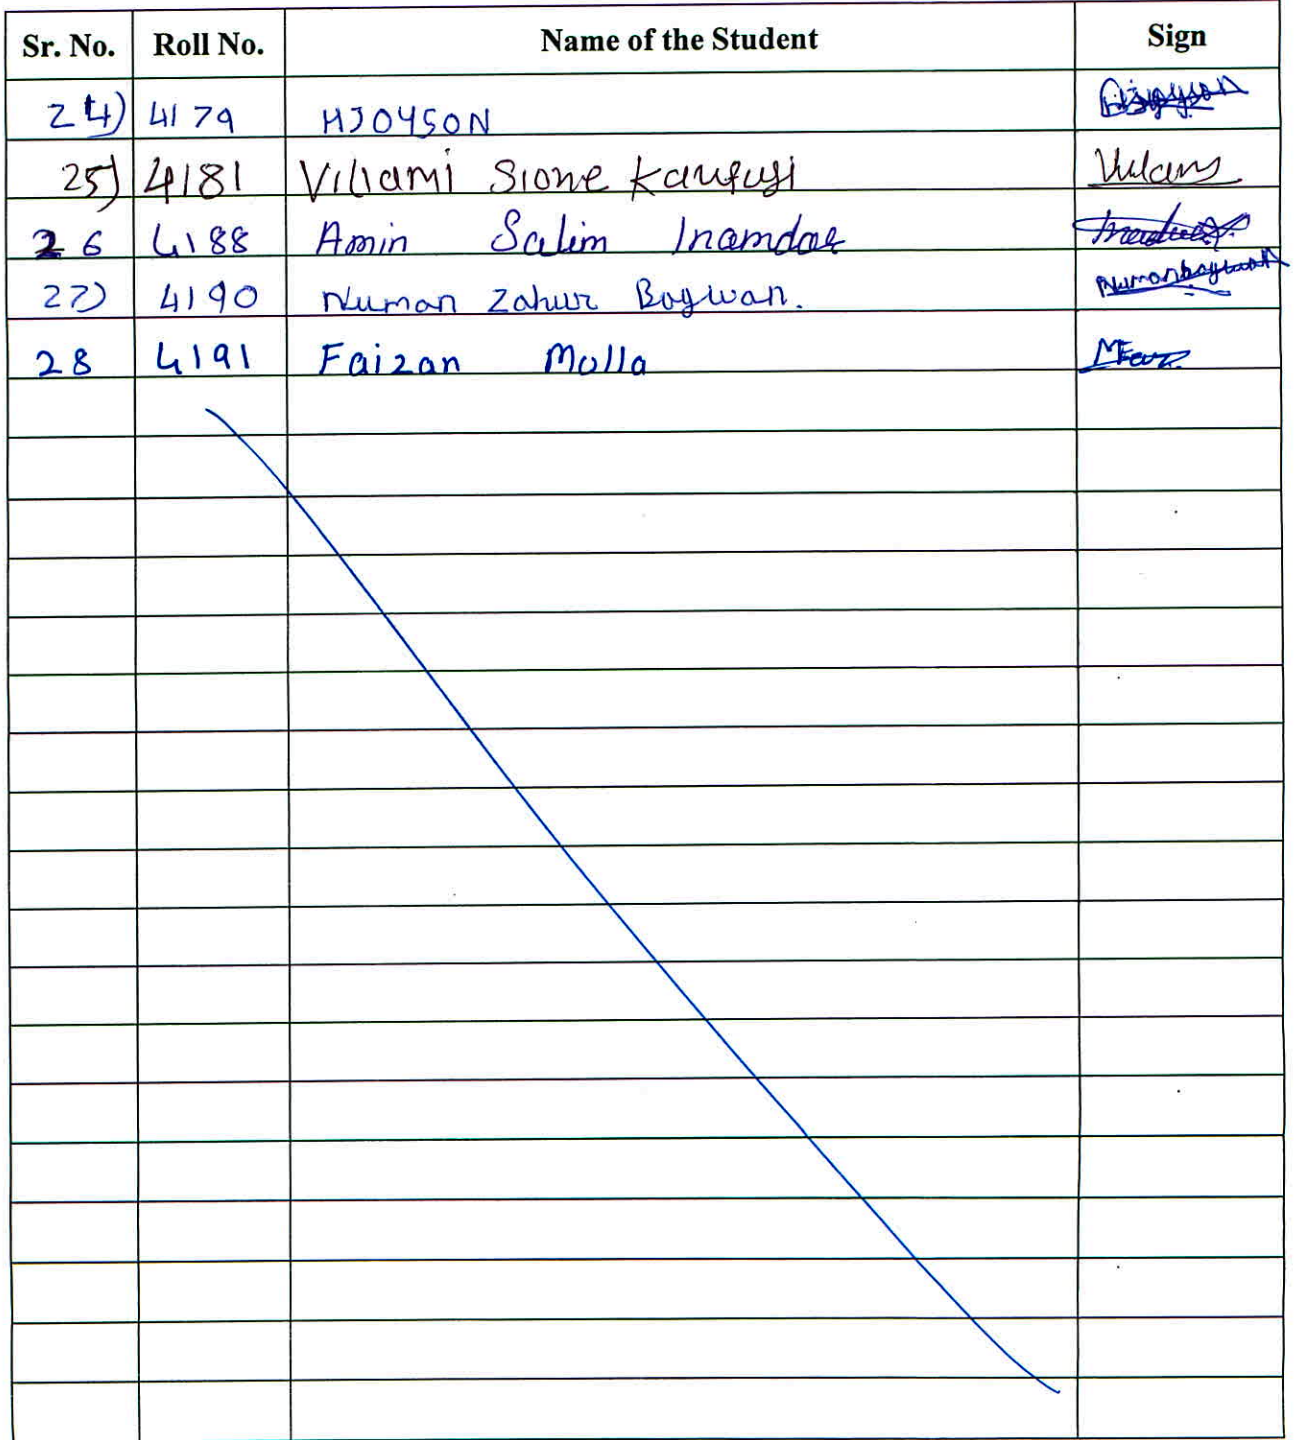 Sr. No. Roll No. Name of the Student Sign
24) 4179 HJOYSON
25) 4181 Viliami Sione Kaufusi
26 4188 Amin Salim Inamdar
27) 4190 Numan Zahur Bagwan. Numanbagwan
28 4191 Faizan Mulla